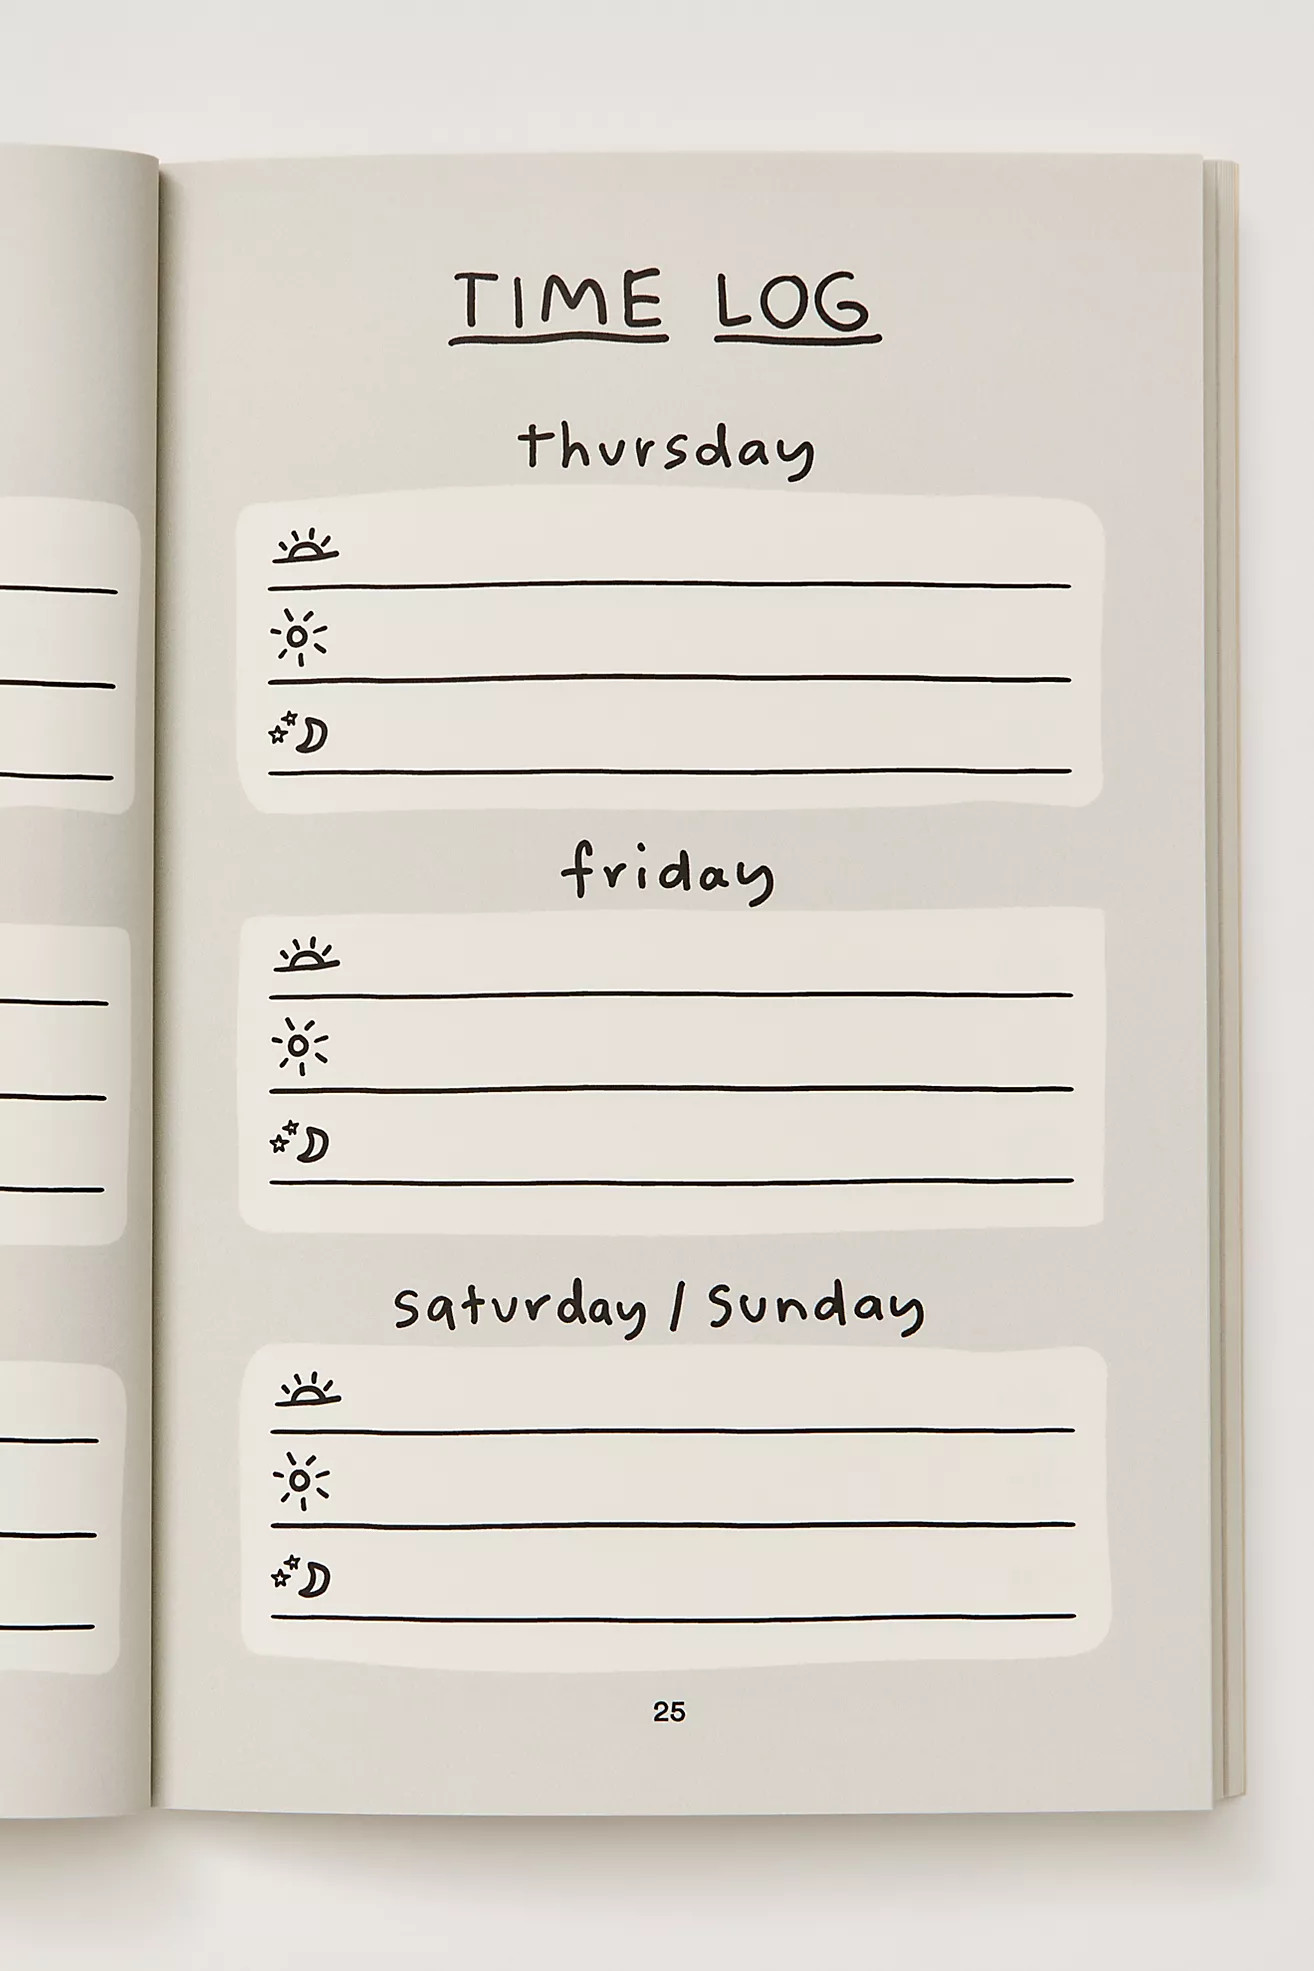 TIME LOG
thursday
friday
saturday / sunday
25